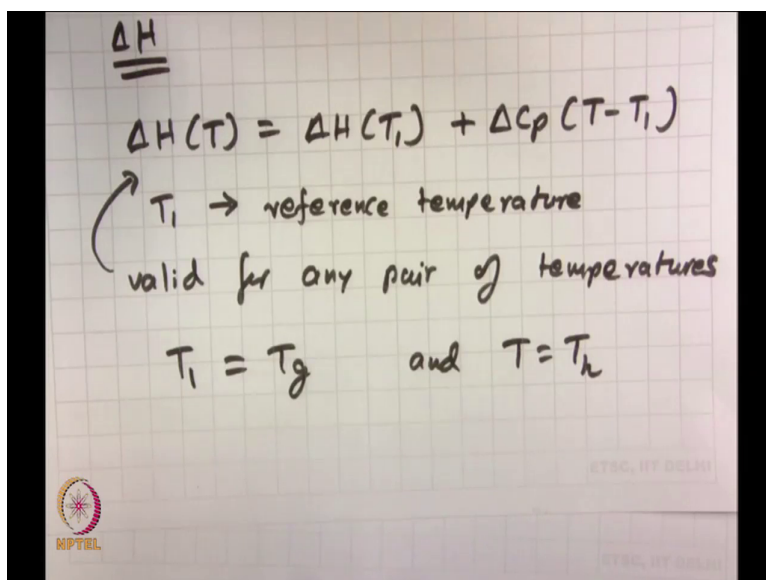 ΔH
ΔH(T) = ΔH(T₁) + ΔCp (T-T₁)
T₁ → reference temperature
valid for any pair of temperatures
T₁ = Tg and T = Th
ETSC, IIT DELHI
NPTEL
ETSC, IIT DELHI